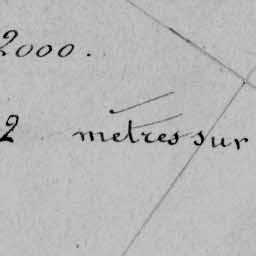 2000.
2 metres sur